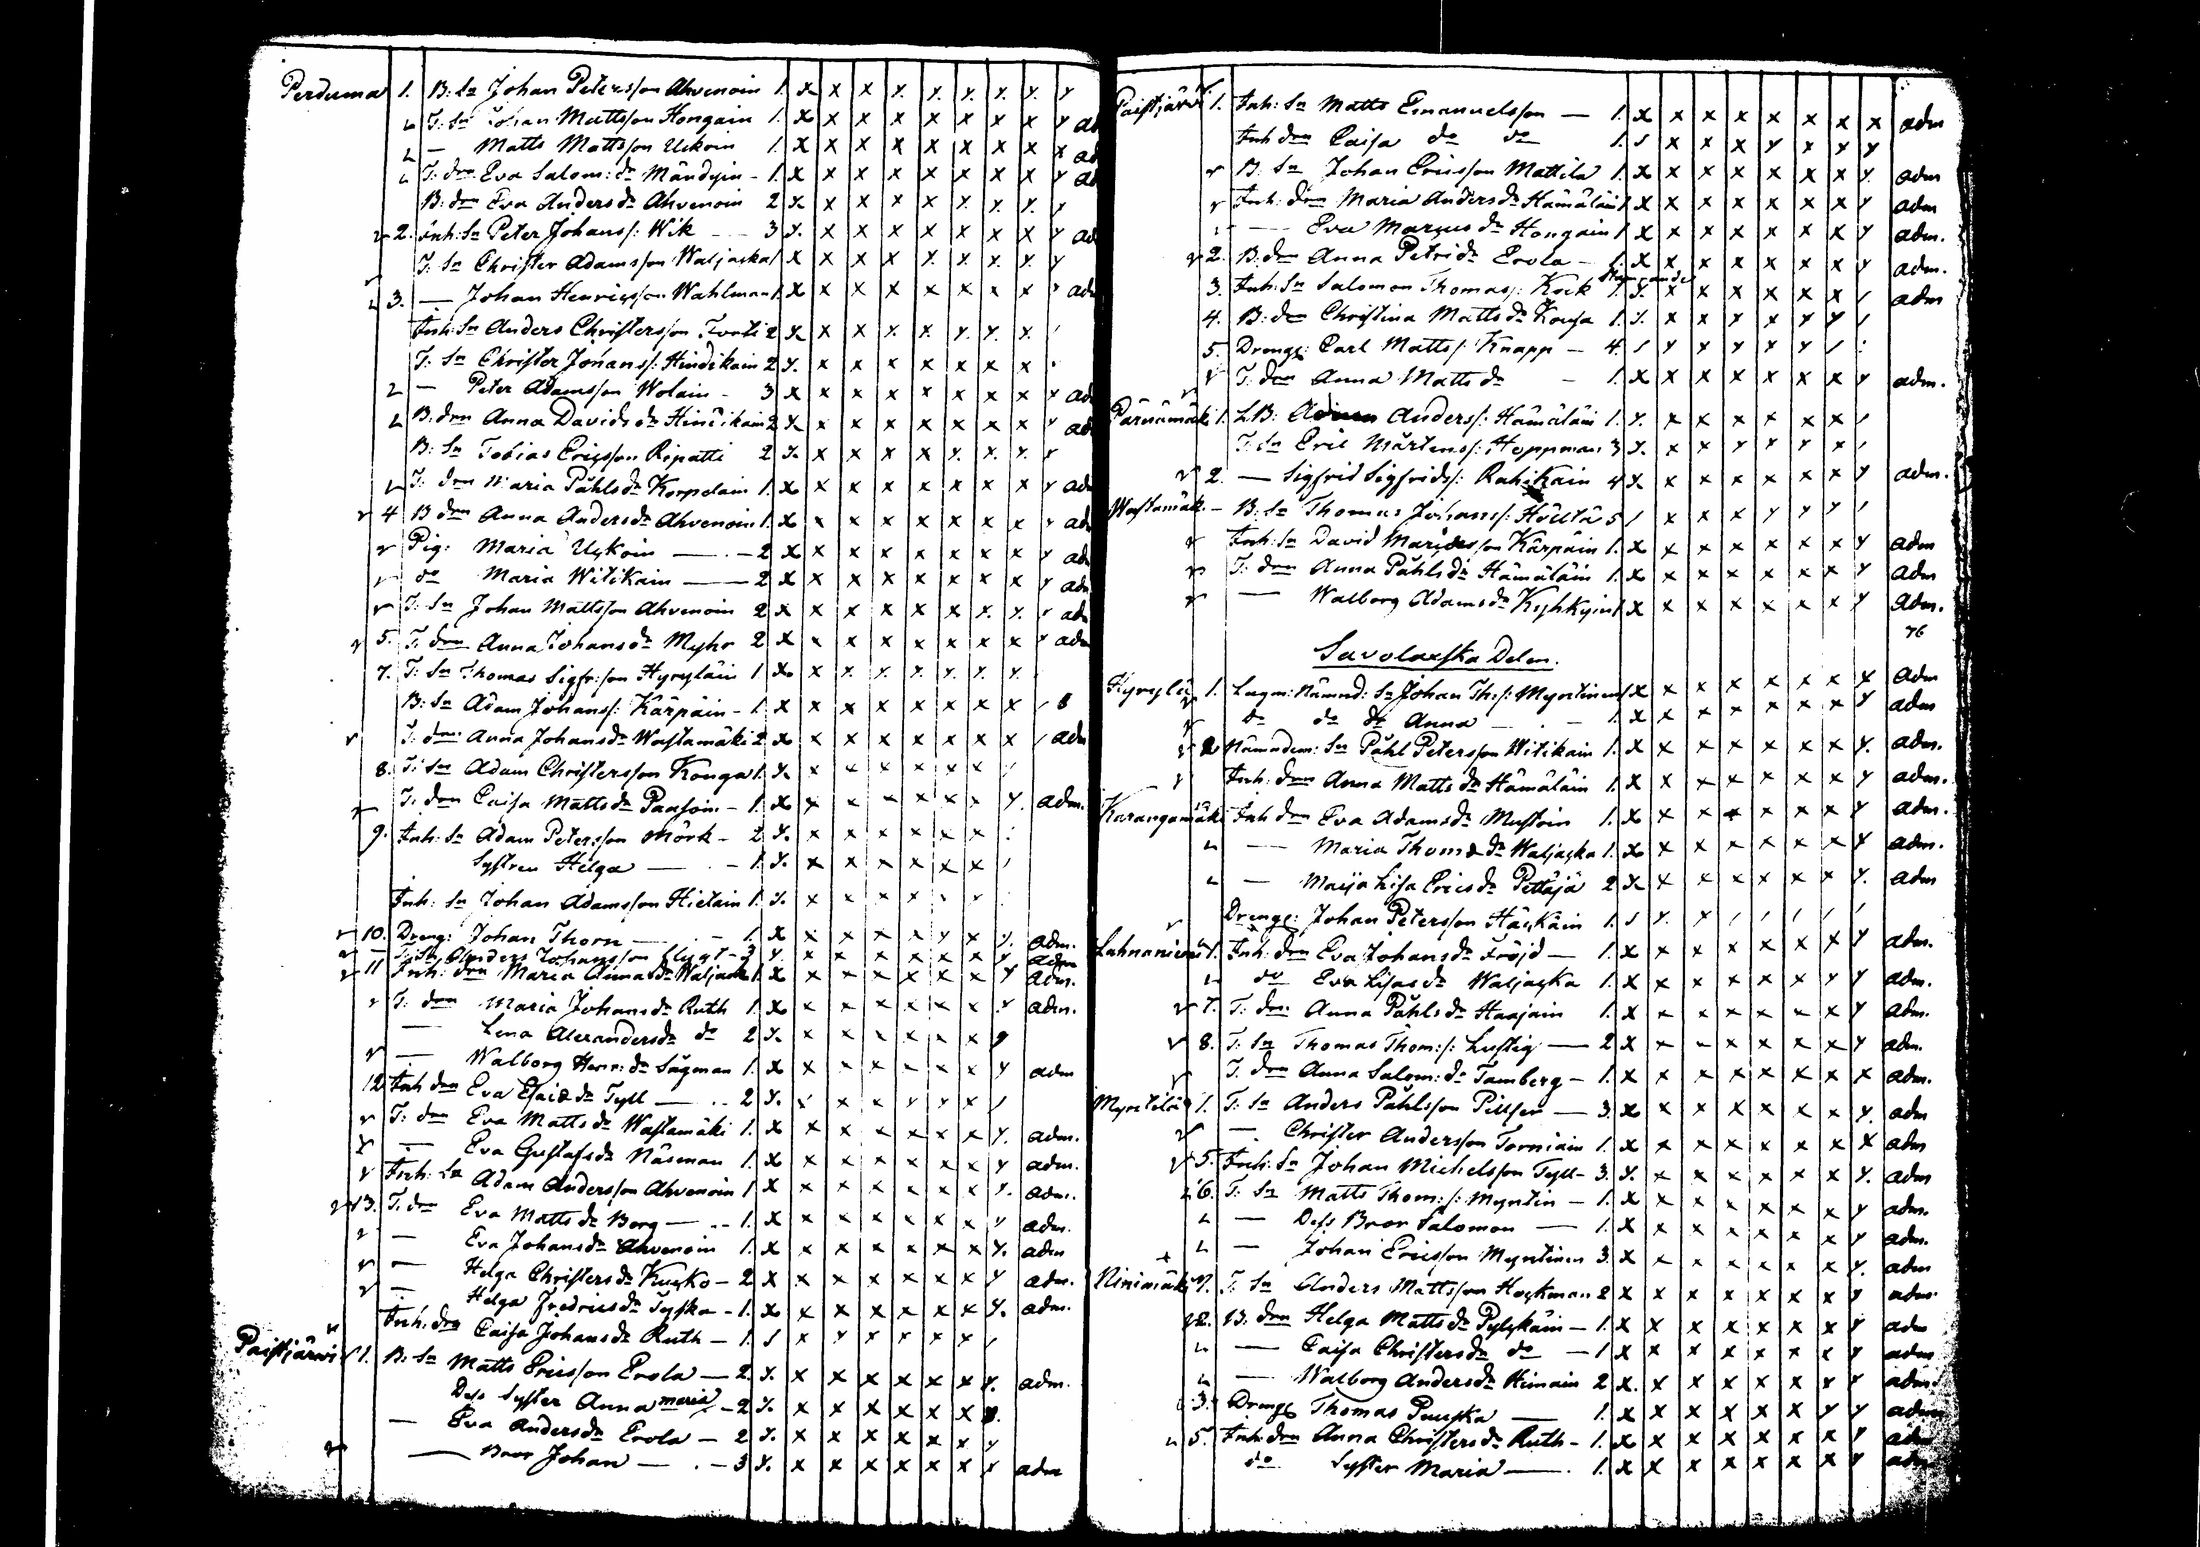 Perduma 1. B: Sn Johan Petersson Ahvenoin 1. x x x x y. y. y. y. y
T: Sn Johan Mattsson Hongain 1. x x x x x x x x y ad
— Matts Mattsson Uckoin 1. x x x x x x x x x ad
T: drn Eva Salom: dr Mändyin - 1. x x x x x x x x y ad
B: drn Eva Anders dr Ahvenoin 2 y. x x x x y. y. y. y
2. Inh: Sn Peter Johans/: Wik - 3 y. x x x x x x x y ad
T. Sn Christer Adamsson Waljacka 1 x x x x y. y. y. y. y
3. — Johan Henricsson Wahlman 1. x x x x x x x x ad
Inh: Sn Anders Christersson 2 y. x x x x y. y. x
T: Sn Christer Johans/: Hindikain 2 y. x x x x x x x
— Peter Adamsson Wolain - 3 x x x x x x x x y ad
B: drn Anna Davids dr Hindikain 2 y. x x x x x x x y ad
B: Sn Tobias Ericsson Ripatti 2 y. x x x x y. x. y. y
T: drn Maria Påhls dr Korpelain 1. x x x x x x x x y ad
4 B drn Anna Anders dr Ahvenoin 1. x x x x x x x x ad
Pig: Maria Uckoin — 2 x x x x x x x x y ad
do Maria Witikain — 2 x x x x x x x x y adm
T: Sn Johan Mattsson Ahvenoin 2 x x x x x x y. y. adm
5. T. drn Anna Johans dr Myhr 2 x x x x x x x x adm
7. T: Sn Thomas Sigfr:son Hyryläin 1 x x y. y. y. y. y. y.
B: Sn Adam Johans/: Kärpäin - 1. x x x x x x x x
T. drn Anna Johans dr Wastamäki 2 x x x x x x x x adm
8. T: Sn Adam Christersson Konga 1. y. x x x x x x
T: drn Caisa Matts dr Paasoin - 1. x x x x x x x y. adm.
9. Inh: Sn Adam Petersson Mörk - 2 y. x x x x x x
Systren Helga — 1. y. x x x x x x
Inh: Sn Johan Adamsson Hietain 1. y. x x x x x x
10. Dreng: Johan Thorn — 1. x x x x x y x y. adm.
T: Sn Anders Johansson Flygt - 3 y. x x x x x x y adm
11 Inh: drn Maria dr Waljacka 1. x x x x x x x y adm.
T: drn Maria Johans dr Ruth 1. x x x x x x x y adm.
— Lena Alexanders dr do 2 y. x x x x x x
— Walborg Henr: dr Sågman 1. x x x x x x x y adm
12 Inh drn Eva Esaiæ dr Tyll — 2 y. x x x y y x
T: drn Eva Matts dr Wastamäki 1. x x x x x x x y. adm.
— Eva Gustafs dr Näsman 1. x x x x x x x y adm.
Inh: Sn Adam Andersson Ahvenoin 1 x x x x x x x y. adm.
13. T: drn Eva Matts dr Borg — 1. x x x x x x x y adm.
— Eva Johans dr Ahvenoin 1. x x x x x x x y. adm
— Helga Christers dr Kucko - 2 x x x x x x x y adm.
— Helga Fredrics dr Tyska - 1. x x x x x x x y. adm.
Inh: drn Caisa Johans dr Ruth - 1. x y x x x x
Paistjärvi 1. B: Sn Matts Ericsson Erola — 2. y. x x x x x x y. adm.
Dess Syster Anna maria - 2 y. x x x x x x
— Eva Anders dr Erola - 2 y. x x x x x x y
— Bror Johan — 3 y. x x x x x x y adm
Paistjärvi 1. Inh: Sn Matts Emanuelsson — 1. x x x x x x x x adm
Inh drn Caisa do do 1. x x x y y y y
B. Sn Johan Ericsson Mattila 1. x x x x x x x y. adm
Inh: drn Maria Anders dr Hämäläin 1 x x x x x x x y adm
— Eva Marcus dr Hongain 1 x x x x x x x y adm.
2. B: drn Anna Petri dr Erola - 1. x x x x x x x y adm.
3. Inh: Sn Salomon Thomas/: Kock 1. y. x x x x x x adm
4. B: drn Christina Matts dr Kousa 1. y. x x x x x y
5. Drenge: Carl Matts/: Knapp - 4. y y y y y
T: drn Anna Matts dr - 1. x x x x x x x y adm.
Pärnämäki 1. Anders/: Hämäläin 1. y. x x x x x
T: Sn Eric Mårtens/: Hoppman 3 y. x x y y y x
2. — Sigfrid Sigfrids/: Rahikain 4 x x x x x x x y adm.
Wastamäk. - B: Sn Thomas Johans/: Hölttä 5 x x x y y y
Inh: Sn David Kärpäin 1. x x x x x x x y adm
T: drn Anna Påhls dr Hämäläin 1. x x x x x x x y adm
— Walborg Adams dr Kyhkyin 1 x x x x x x x y adm.
76
Savolaxska Delen.
Hyrylä 1. Lagm: Nämnd: Sn Johan Th:/: Myntinen 1 x x x x x x x y adm
do do dr Anna — 1. x x x x x x x y adm
2 Nämndem: Sn Påhl Petersson Witikain 1. x x x x x x x y. adm.
Inh: drn Anna Matts dr Hämäläin 1. x x x x x x x y adm.
Karangamäki Inh drn Eva Adams dr Mustoin 1. x x x x x x x y adm.
— Maria Thomæ dr Waljacka 1. x x x x x x x y adm.
— Maija Lisa Erics dr Pettäjä 2 x x x x x x x y. adm
Drenge: Johan Petersson Häckäin 1. y. x
Lahnaniemi 1. Inh: drn Eva Johans dr Fröjd — 1. x x x x x x x y adm.
do Eva Lisas dr Waljacka 1. x x x x x x y y adm.
7. T: drn Anna Påhls dr Haajain 1. x x x x x x x y adm.
8. T: Sn Thomas Thom:/: Lustig — 2 x x x x x x x y adm.
T. drn Anna Salom: dr Tamberg - 1. x x x x x x x x adm.
Myntilä 1. T: Sn Anders Påhlsson Pillser — 3. x x x x x x x y. adm
— Christer Andersson Torniain 1. x x x x x x x x adm
5. Inh: Sn Johan Michelsson Tyll - 3. y. x x x x x x y. adm
6. T: Sn Matts Thom:/: Myntin - 1. x x x x x x x y adm.
— Dess Bror Salomon — 1. x x x x x x x y adm.
— Johan Ericsson Myntinen 3. x x x x x x x y. adm
Ninimäki 1. T: Sn Anders Mattsson Hockman 2 x x x x x x x y adm.
2. B. drn Helga Matts dr Pylckäin — 1. x x x x x x x y adm
— Caisa Christers dr do — 1 x x x x x x y y adm
— Walborg Anders dr Heinäin 2 x. x x x x x y y adm.
3. Drenge Thomas Puuska — 1. x x x x x x y y adm
5. Inh: drn Anna Christers dr Ruth - 1. x x x x x x x y adm
do Syster Maria — 1. x x x x x x x y adm